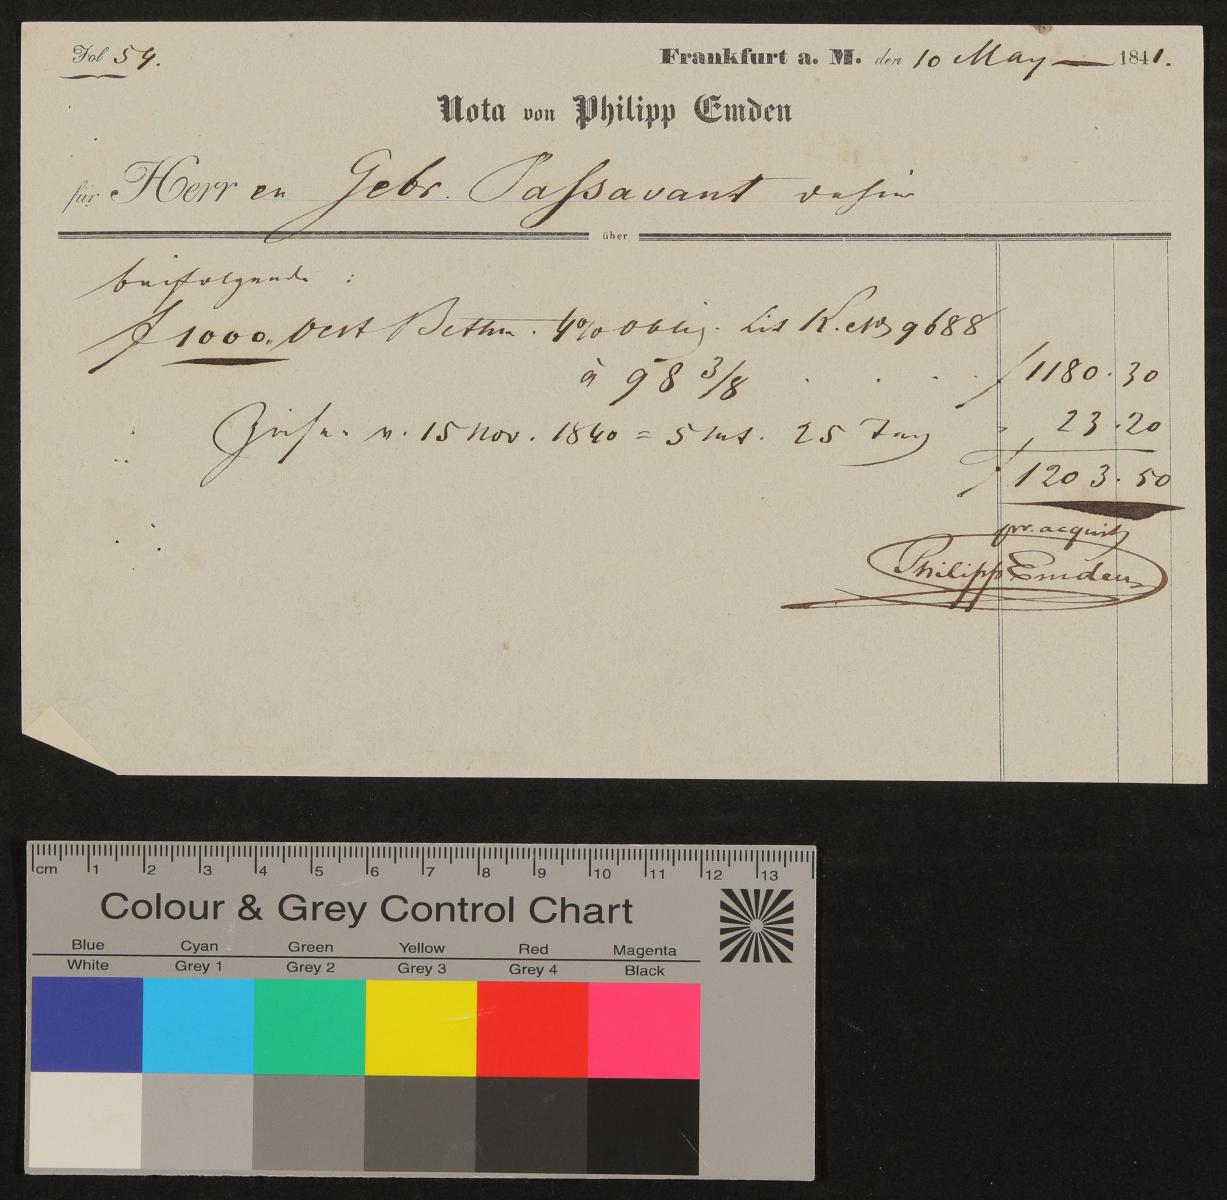 Fol 54. Frankfurt a. M. den 10 May 1841.
Nota von Philipp Emden
für Herr en Gebr. Passavant dahier
über
beifolgende :
f 1000. Oest Bethm. 4% Oblig. Lit K. No 9688
à 98 3/8 . . . . f 1180. 30
Zinsen v. 15 Nov. 1840 = 5 Mt. 25 Tag " 23. 20
f 1203. 50
pr. acquit
Philipp Emden
cm 1 2 3 4 5 6 7 8 9 10 11 12 13
Colour & Grey Control Chart
Blue Cyan Green Yellow Red Magenta
White Grey 1 Grey 2 Grey 3 Grey 4 Black